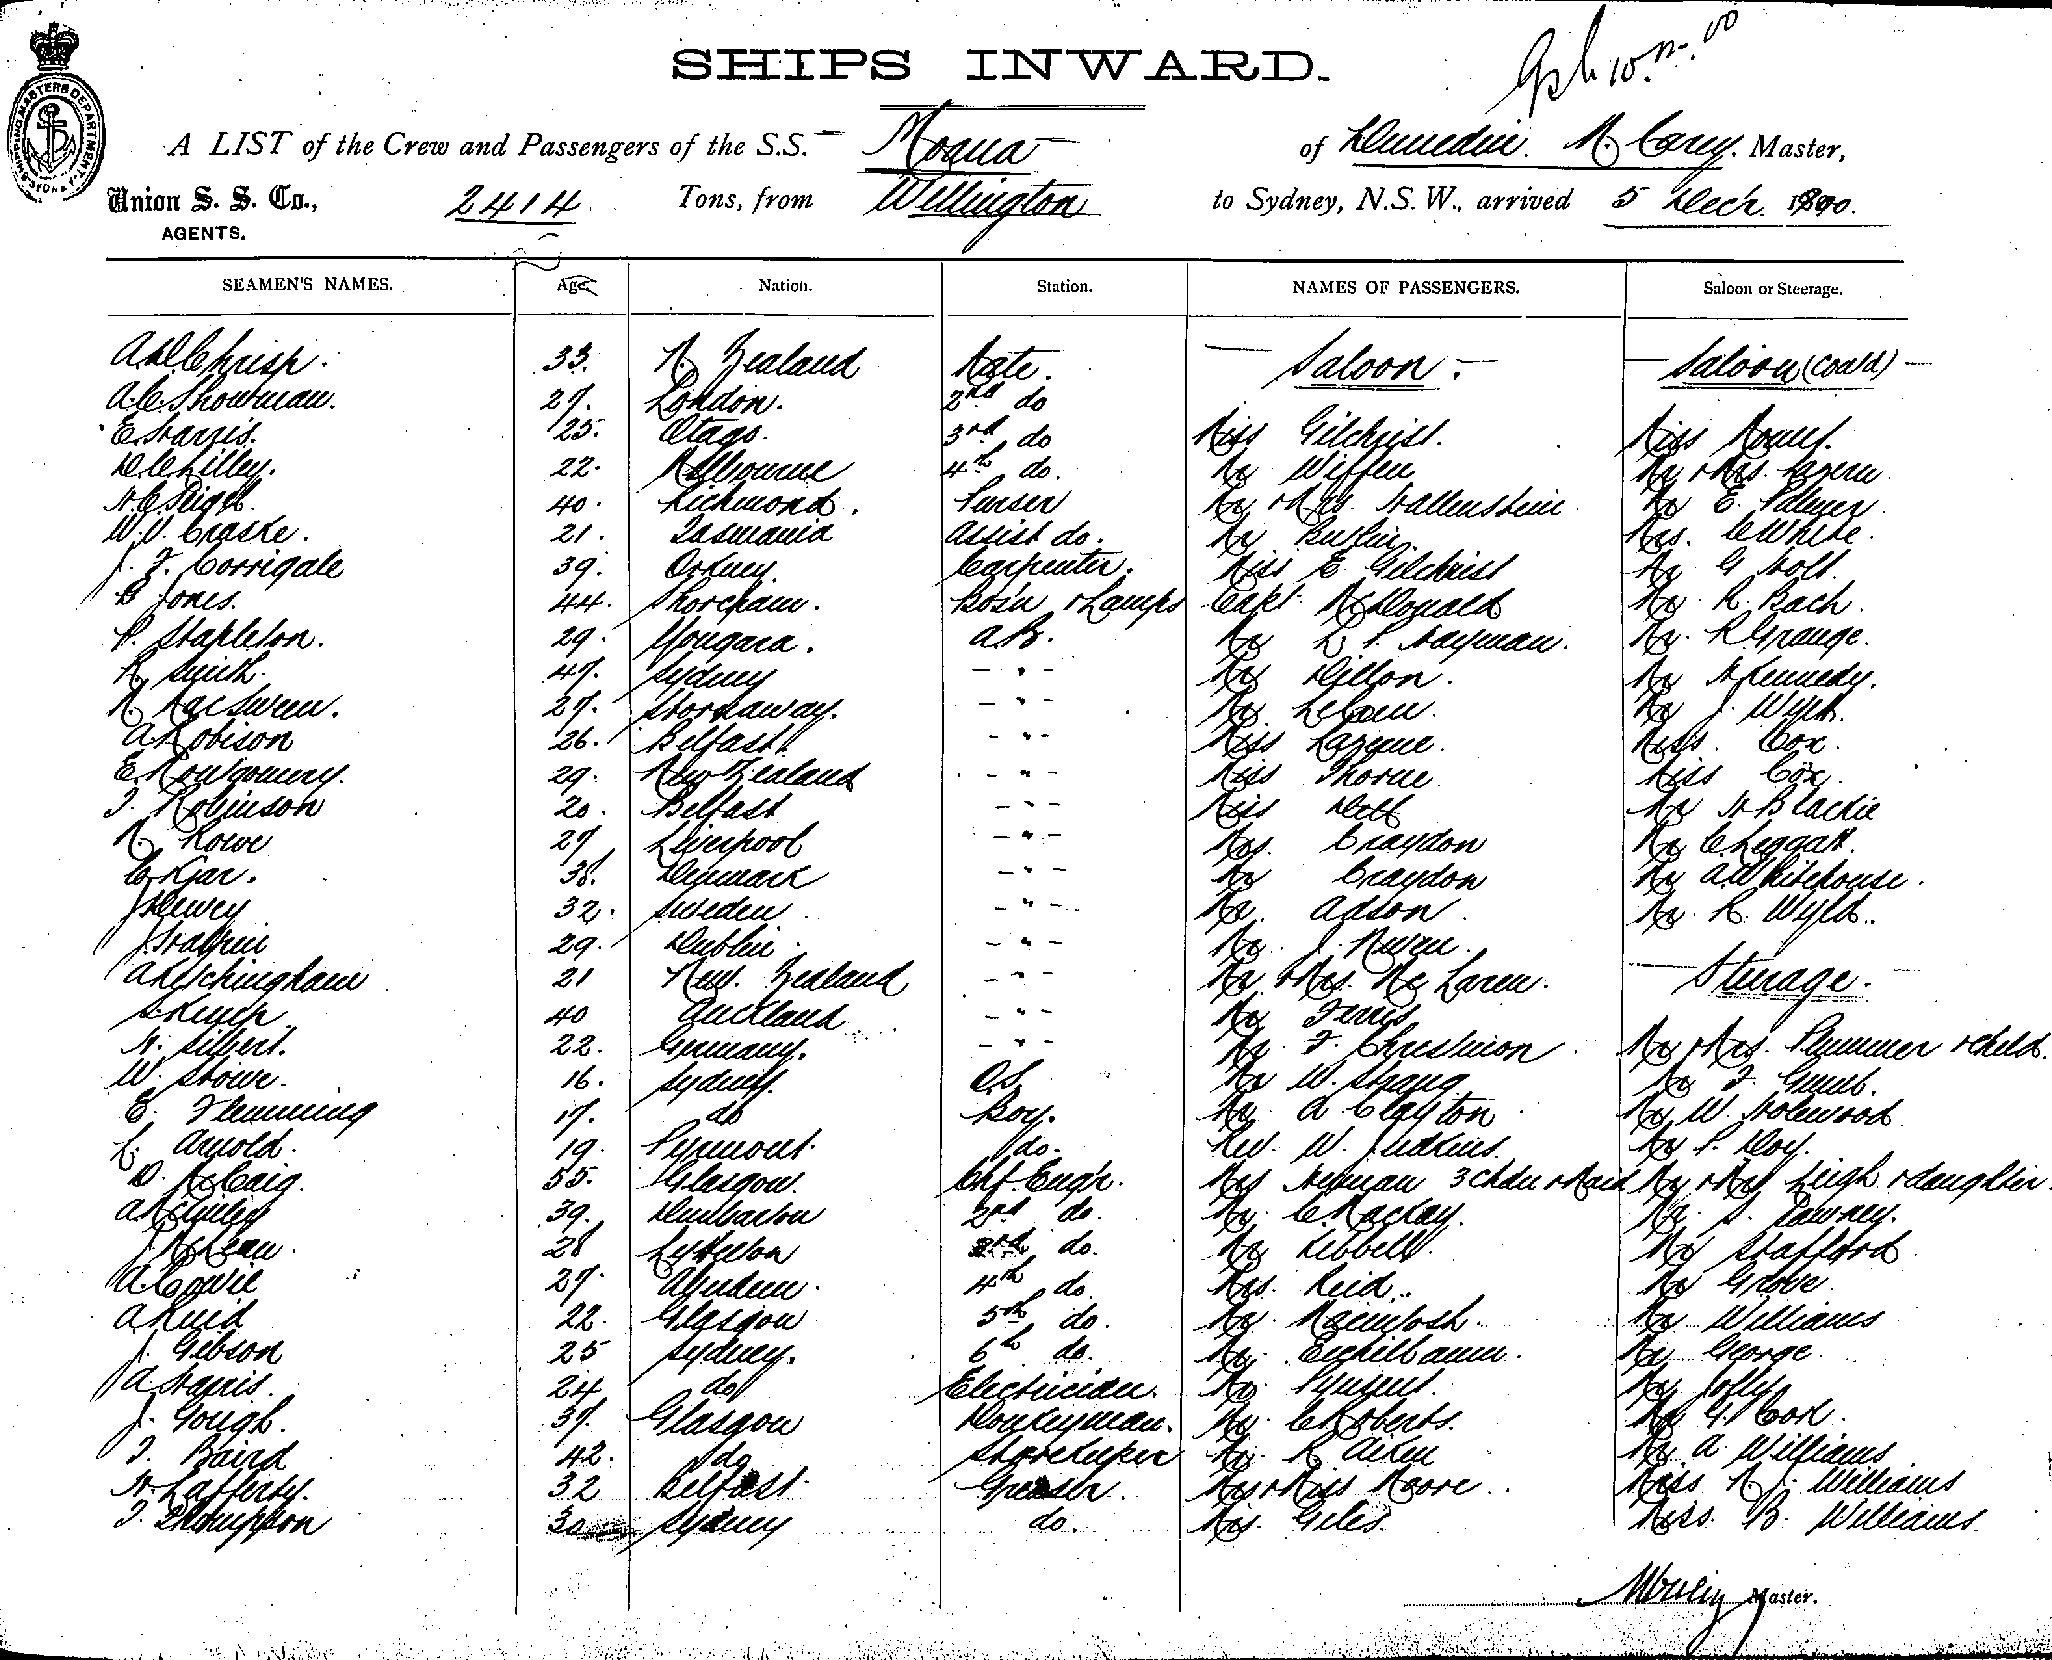 SHIPS INWARD.
A LIST of the Crew and Passengers of the S.S. Moana of Dunedin. M. Carey. Master,
Union S. S. Co., 2414 Tons, from Wellington to Sydney, N.S.W., arrived 5 Decr. 1900.
AGENTS.
SEAMEN'S NAMES. Age Nation. Station. NAMES OF PASSENGERS. Saloon or Steerage.
33. N. Zealand Mate. Saloon. Saloon (Contd)
A.C. Showman. 27. London. 2nd do
E. Harris. 25. Otago. 3rd do Miss Gilchrist. Miss
D.C. Lilley. 22. Melbourne 4th do. Mr Wiffen Mr & Mrs.
40. Richmond. Purser Mr & Mrs. Hallenstein Mr E. Palmer.
W.V. Craske. 21. Tasmania Assist do. Mr Butlin. Mrs. C White.
J. F. Corrigale 39. Orkney. Carpenter. Miss E Gilchrist Mr G Holt.
C Jones. 44. Shoreham. Bosn & Lamps Capt. McDonald Mr. R. Bach.
P. Stapleton. 29. A.B. Mr L P. Hayman. Mr. R Grange.
R. Smith. 47. Sydney - " - Mr Dillon. Mr H Kennedy.
M. MacSween. 27. Stornaway. - " - Mr Mr J. Wyld.
A Robison 26. Belfast. - " - Miss Miss. Cox.
E. Montgomery. 29. New Zealand - " - Miss Thorne Miss Cox.
J. Robinson 20. Belfast - " - Miss Mr H Blackie
N. Rowe 27 Liverpool - " - Mrs. Craydon Mr C Leggatt.
C. Kjar. 38. Denmark - " - Mr Craydon Mr A Whitehouse.
J Dewey 32. Sweden - " - Mr. Adson Mr. R. Wyld.
J. Halpin 29. Dublin - " - Mr. J. Niven.
A Letchingham 21 New Zealand - " - Mr & Mrs. McLaren. Steerage.
40 Auckland - " - Mr Ferris
H. Silbert. 22. Germany. - " - Mr. F. Mr & Mrs. Plummer & child.
W. Stowe. 16. Sydney. O.S. Mr W. Strang Mr F.
E. Flemming 17. do Boy. Mr. A Clayton Mr W. Holewood
L. Arnold. 19. Pyrmont. do. Rev. W. Judkins. Mr P. Hoy.
D. McCaig. 55. Glasgow. Chf. Engr. Mrs Newman 3 chdn & Maid Mr & Mrs Leigh & daughter.
39. Dunbarton 2nd do. Mr. C. Mackay. Mr. S. Pawney.
J. McLean. 28 Lyttelton 3rd do. Mr Kebbell. Mr Stafford
A. Cowie 27. Aberdeen. 4th do. Mrs. Reid. Mr Grove.
A Reid 22. Glasgow 5th do. Mr Macintosh. Mr Williams
J. Gibson 25 Sydney. 6th do. Mr. Eichelbaum. Mr George.
A Harris. 24 do Electrician. Mr. Mr Jolly
J. Gough. 37. Glasgow Donkeyman. Mr. C Roberts. Mr G. Cox.
J. Baird 42. do Storekeeper Mr. R Aiken Mr. A. Williams
H. Lafferty. 32 Belfast. Greaser. Mrs & Miss Moore Miss M J. Williams
J. Thompson 30 Sydney do. Mrs. Giles. Miss. B. Williams
Master.